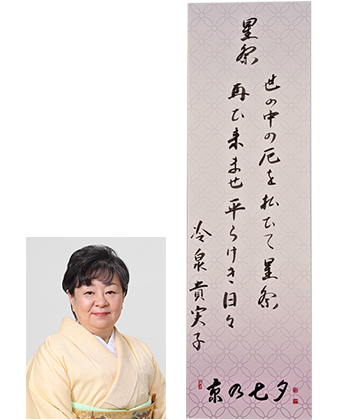 星祭
世の中の厄を払ひて星祭
再び来ませ平らけき日々
冷泉貴実子
京の七夕